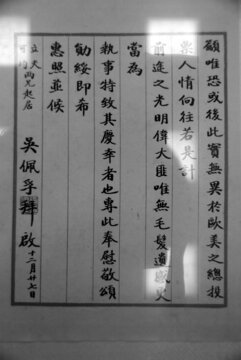 顧唯恐或後此實無異於歐美之總投
票人情向往若是計
前途之光明偉大匪唯無毛髮遺憾也
當為
執事特致其慶幸者也專此奉慰敬頌
勛綏即希
惠照並候
立夫
可均兩兄起居
吳佩孚拜啟
十二月廿七日